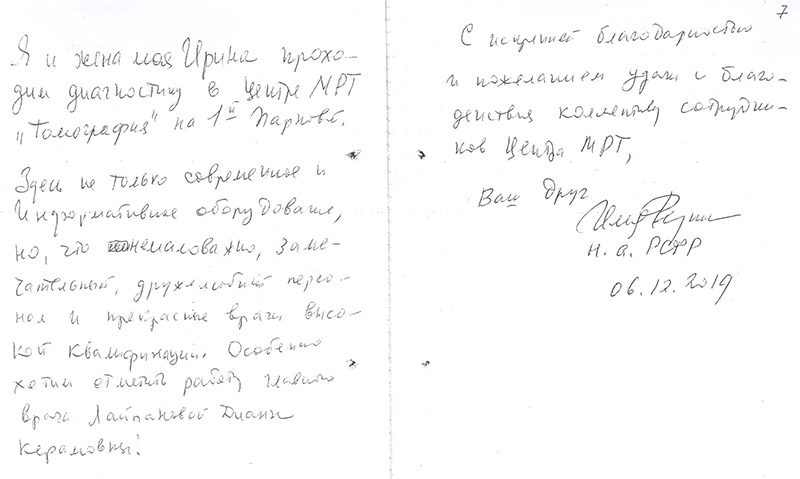 Я и жена моя Ирина прохо-
дим диагностику в Центре МРТ
"Томография" на 1й Парковой.
Здесь не только современное и
информативное оборудование,
но, что немаловажно, заме-
чательный, дружелюбный персо-
нал и прекрасные врачи высо-
кой квалификации. Особенно
хотим отметить работу главного
врача Лайпановой Дианы
Керамовны!
7
С искренней благодарностью
и пожеланием удачи и благо-
действия коллективу сотрудни-
ков Центра МРТ,
Ваш друг
Н. а. РСФСР
06.12.2019